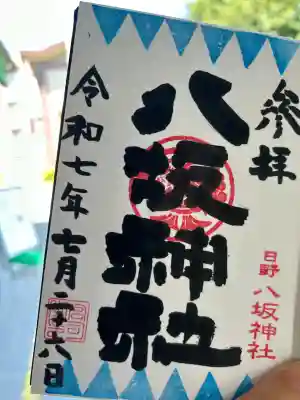 参拝
日野 八坂神社
八坂神社
令和七年七月二十六日